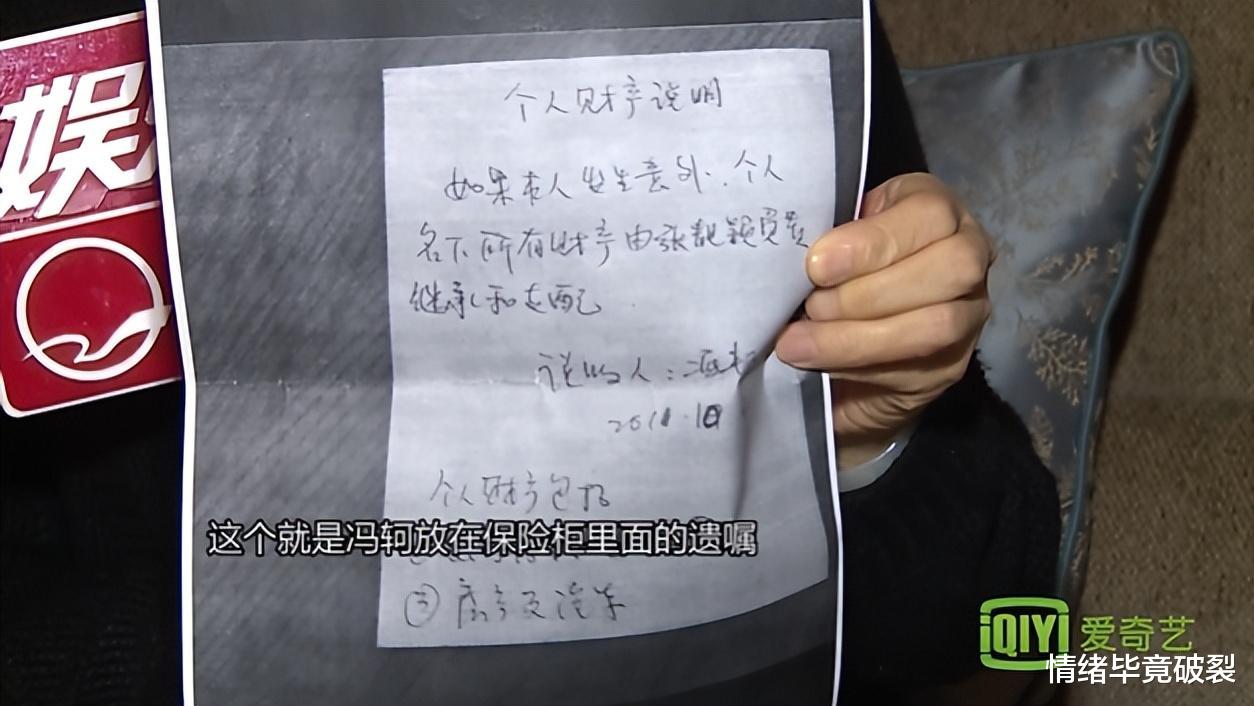 娱
个人财产说明
如果本人发生意外，个人
名下所有财产由张靓颖负责
继承和支配．
说明人：冯轲
2011.10
个人财产包括
这个就是冯轲放在保险柜里面的遗嘱
③房产及汽车
iQIYI 爱奇艺
情绪毕竟破裂